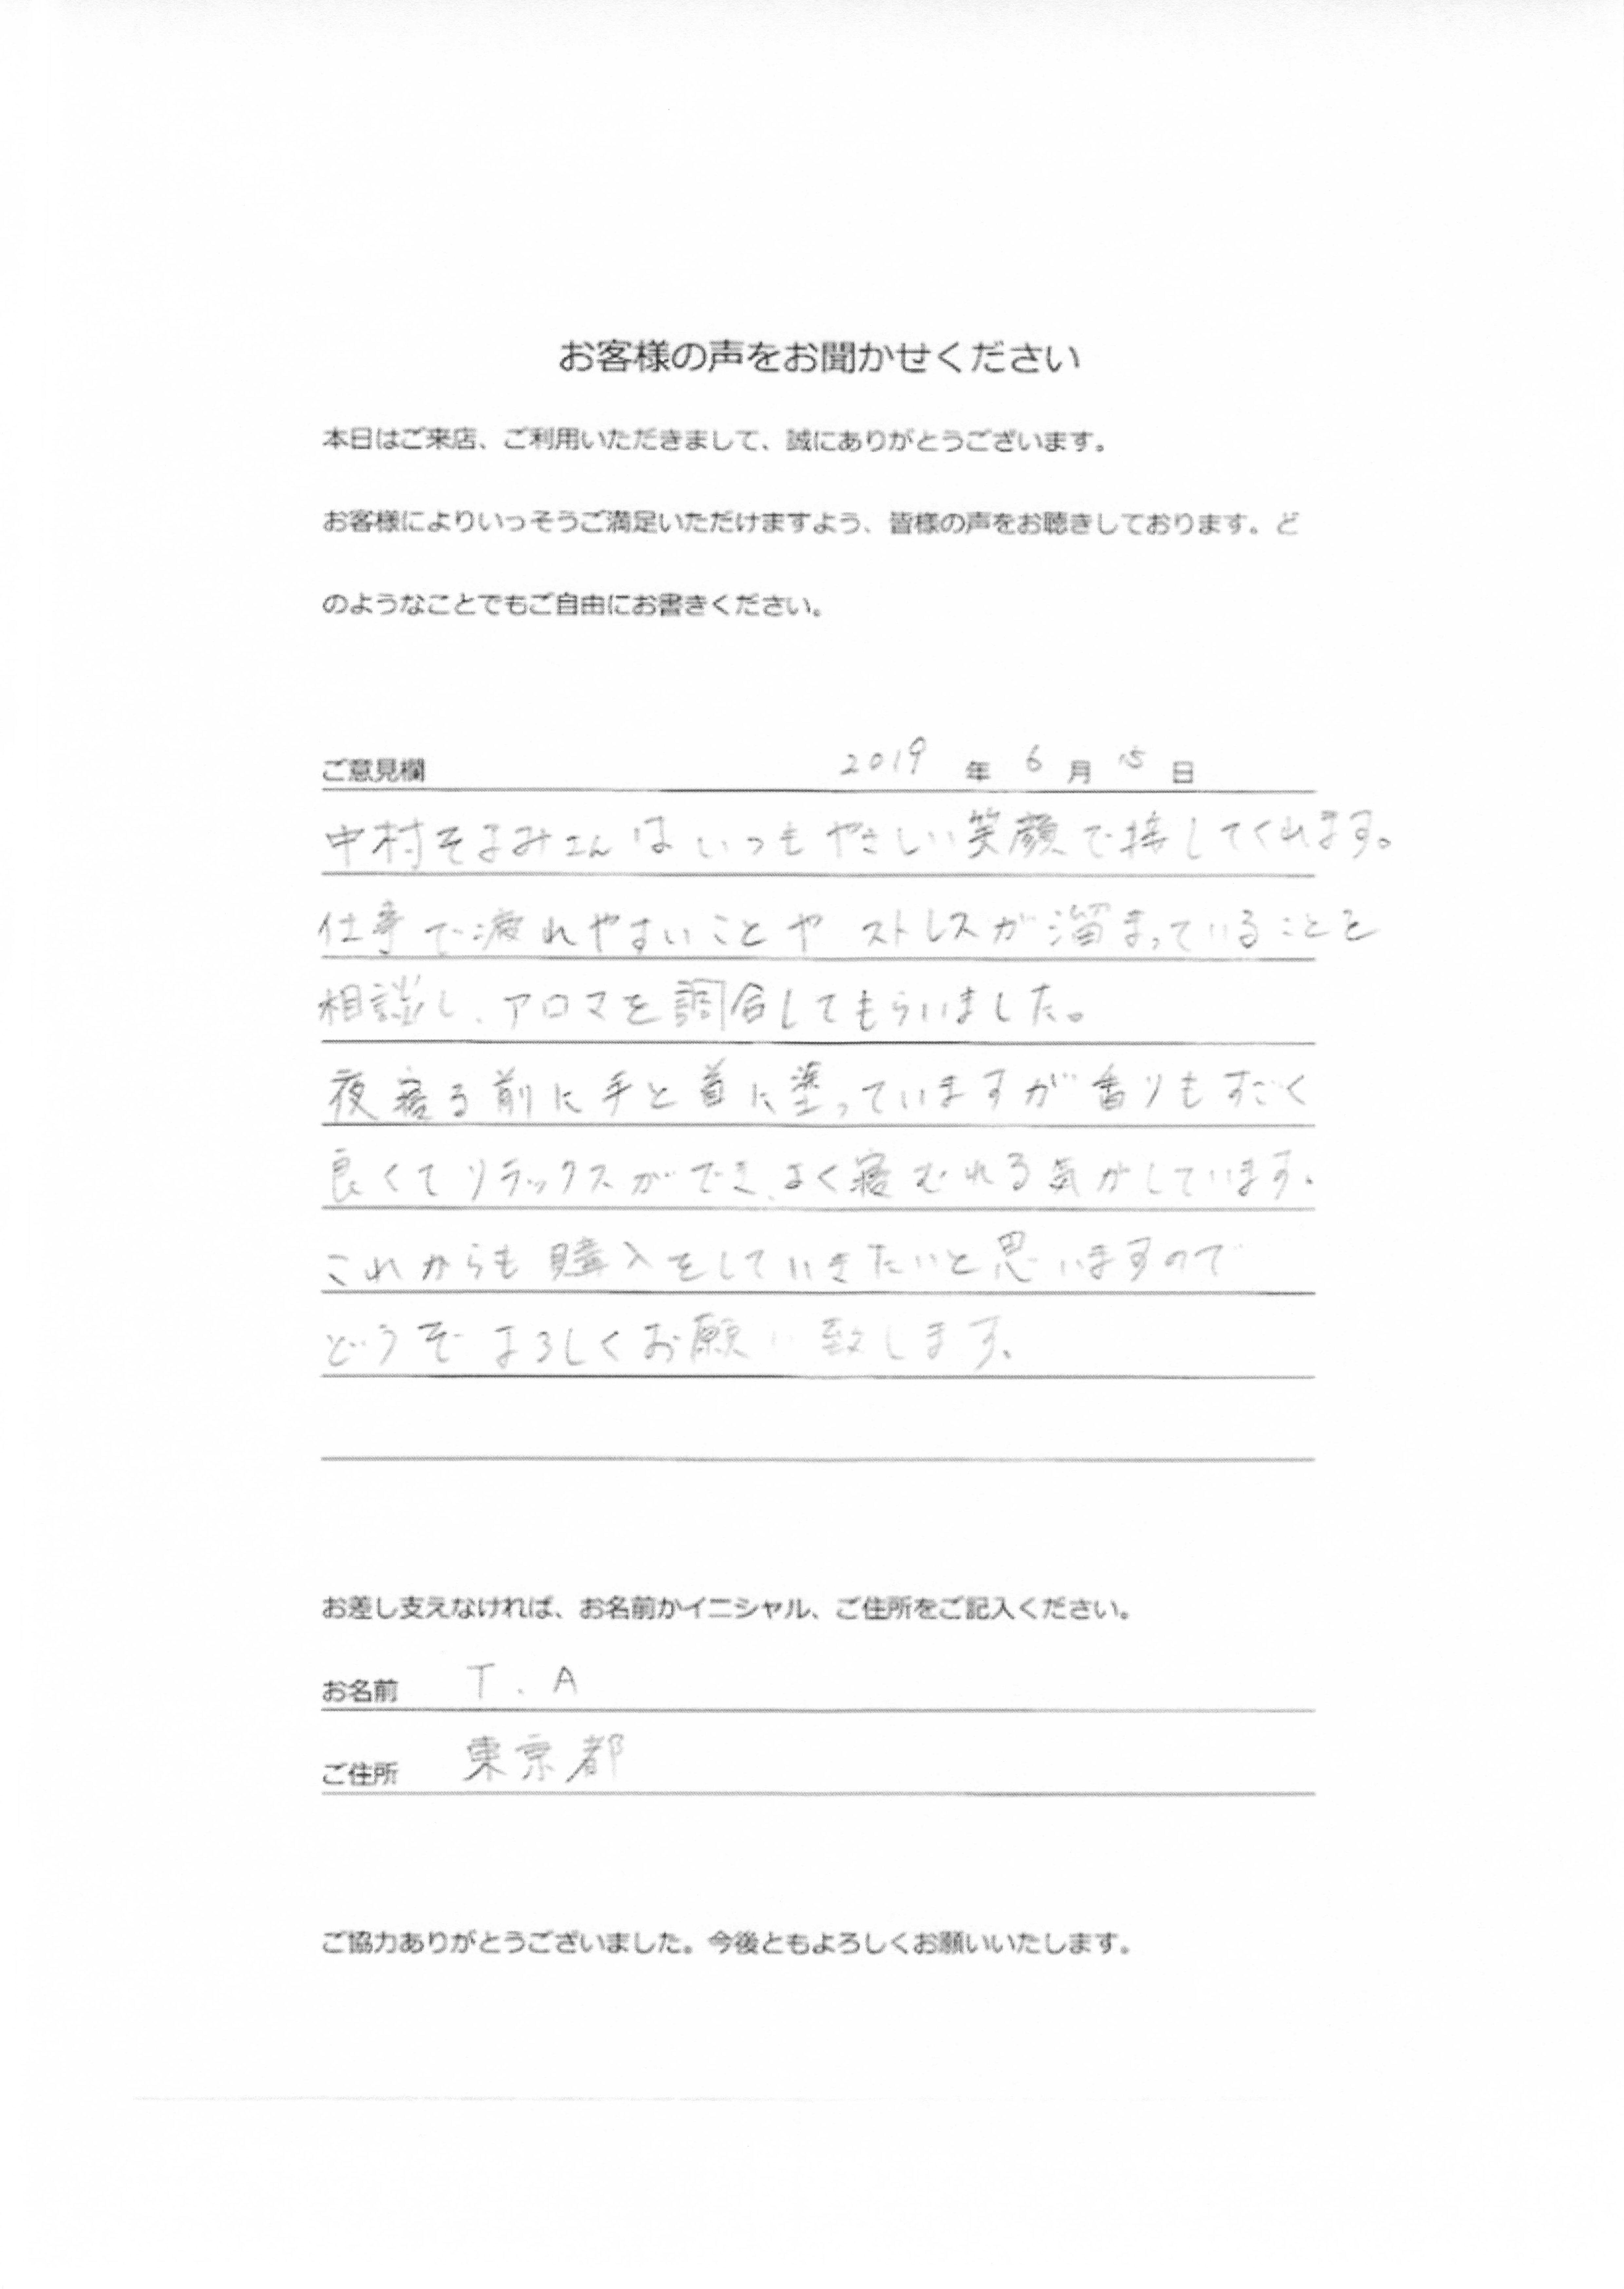 お客様の声をお聞かせください
本日はご来店、ご利用いただきまして、誠にありがとうございます。
お客様によりいっそうご満足いただけますよう、皆様の声をお聴きしております。ど
のようなことでもご自由にお書きください。
ご意見欄 2019 年 6 月 15 日
中村そまみさんはいつもやさしい笑顔で接してくれます。
仕事で疲れやすいことや ストレスが溜まっていることを
相談し、アロマを調合してもらいました。
夜寝る前に手と首に塗っていますが香りもすごく
良くてリラックスができ、よく寝むれる気がしています。
これからも購入をしていきたいと思いますので
どうぞよろしくお願い致します。
お差し支えなければ、お名前かイニシャル、ご住所をご記入ください。
お名前 T.A
ご住所 東京都
ご協力ありがとうございました。今後ともよろしくお願いいたします。